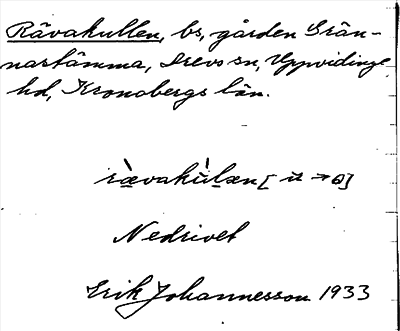 Rävakullen, bs, gården Grän-
narhämma, Drevs sn, Uppvidinge
hd, Kronobergs län.
rævakulæn [
Nedrivet
Erik Johannesson 1933